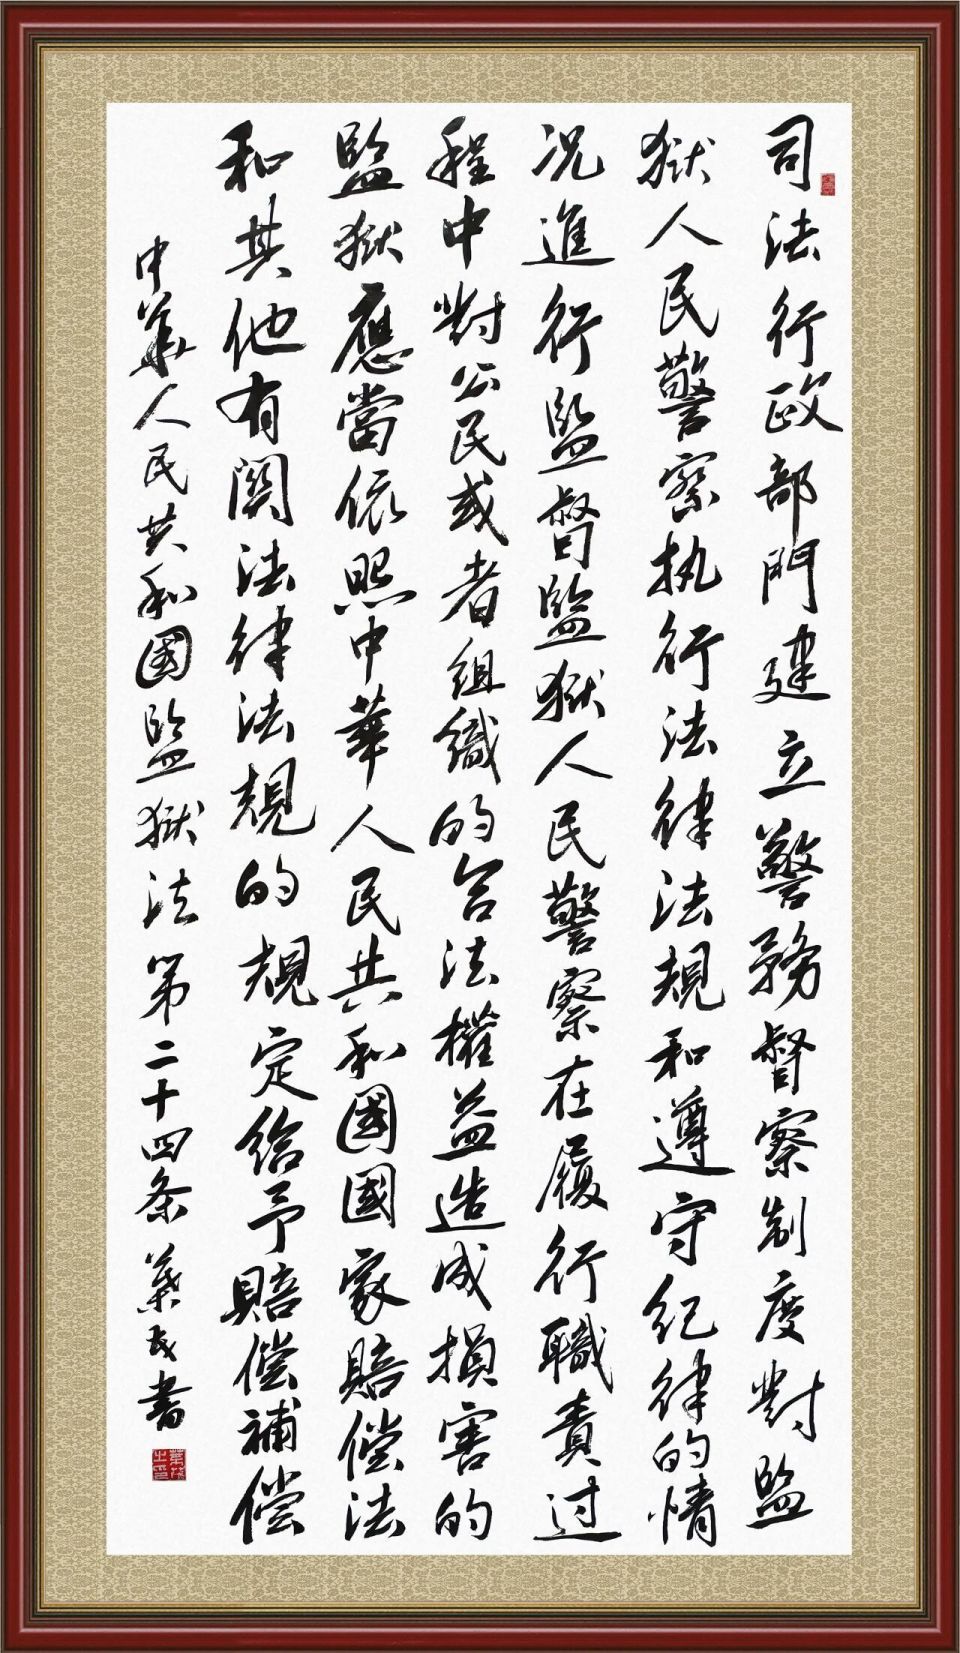 司法行政部門建立警務督察制度對監
獄人民警察执行法律法規和遵守纪律的情
況進行監督監獄人民警察在履行職責过
程中對公民或者组織的合法權益造成損害的
監獄應當依照中華人民共和國國家賠偿法
和其他有関法律法規的規定给予賠偿補偿
中華人民共和國監獄法第二十四条 葉民書